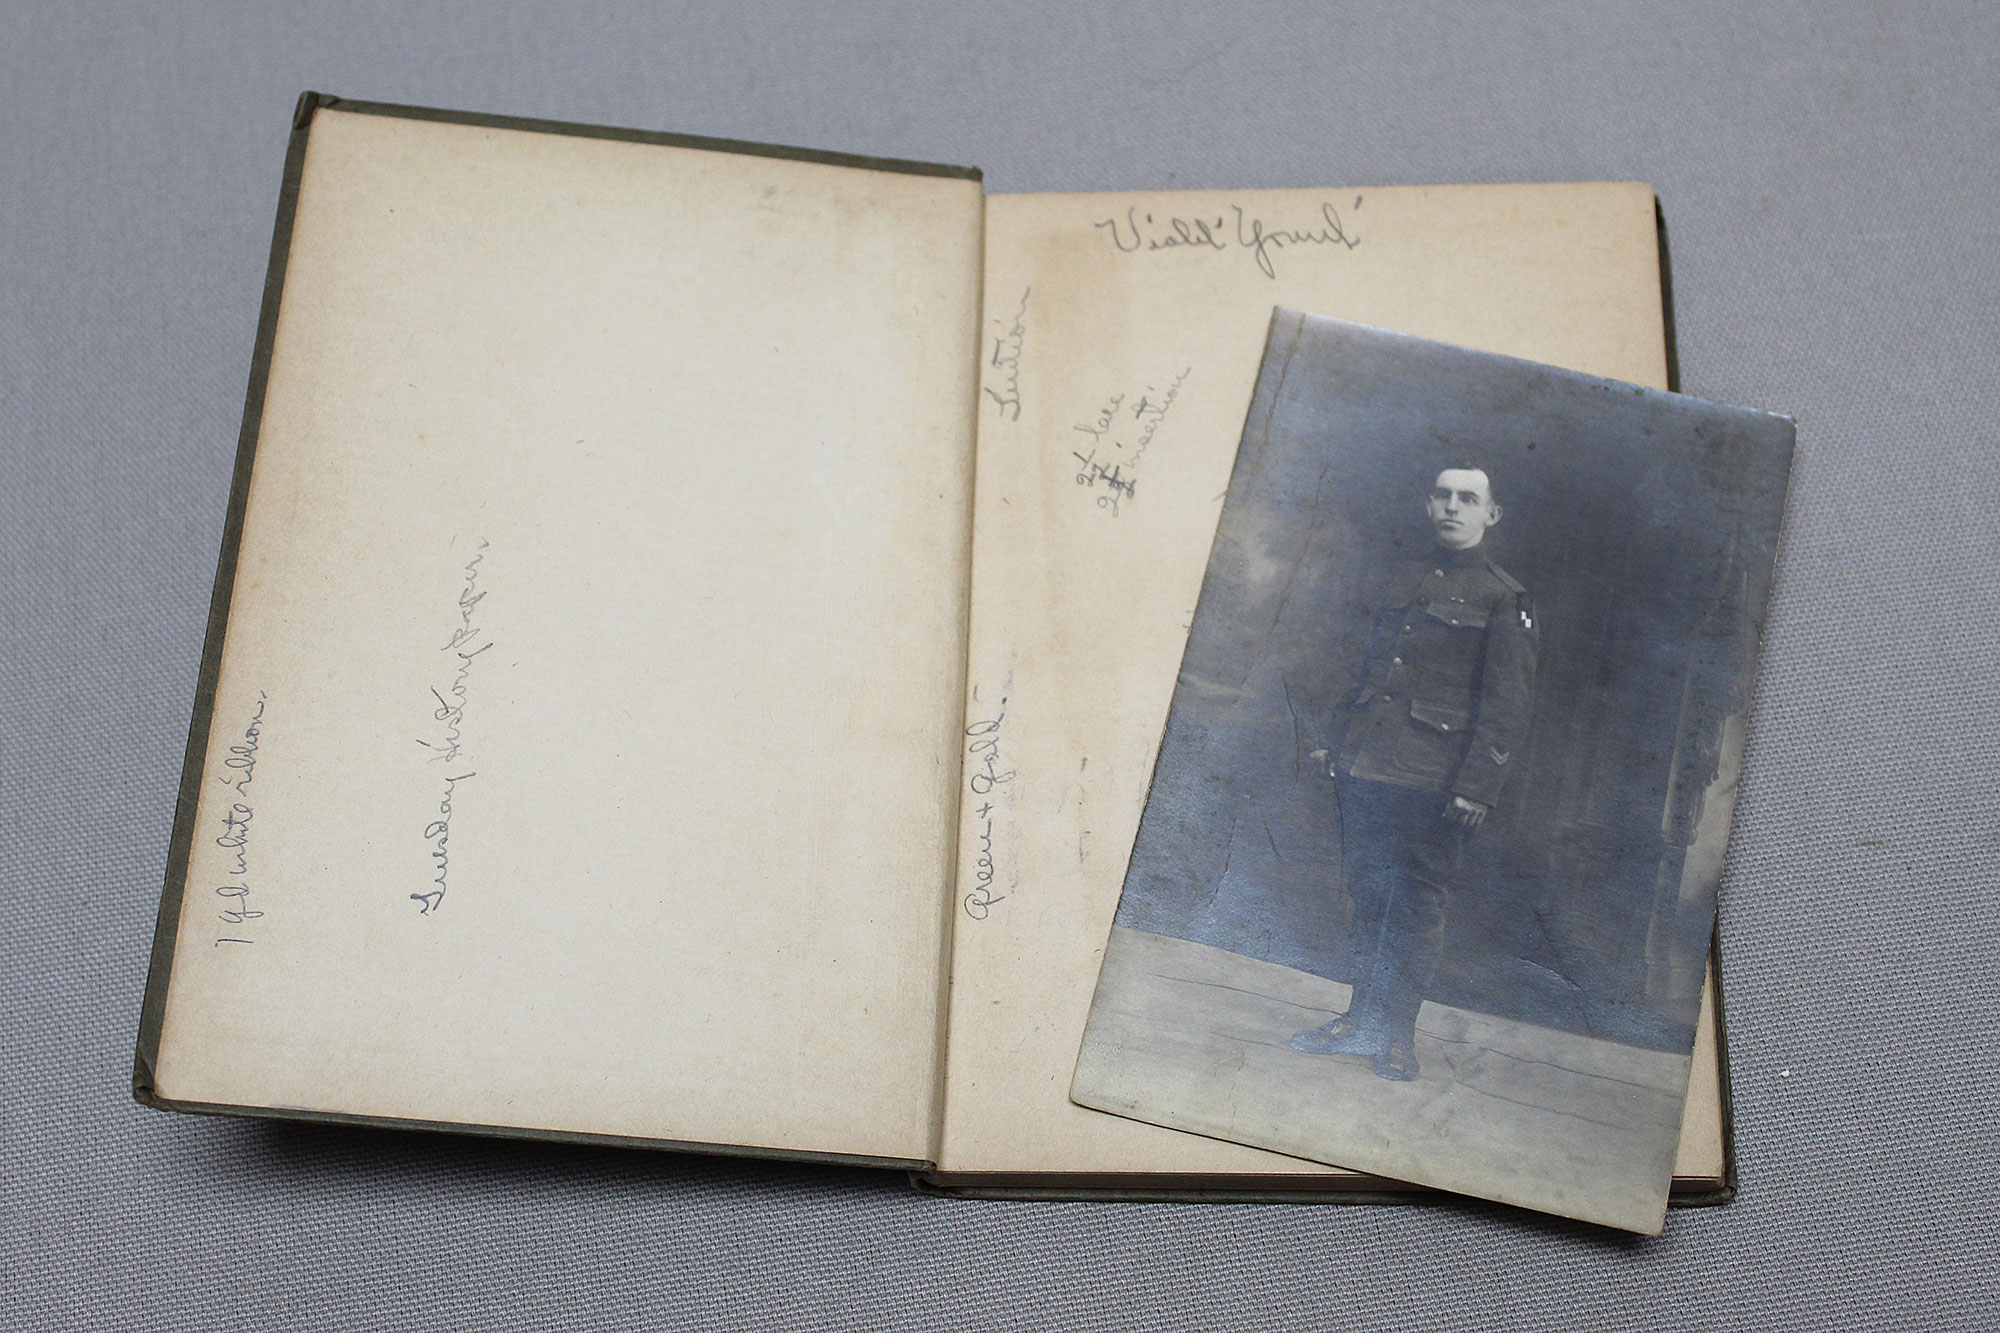 1 yd white ribbon.
Tuesday History paper.
Violet Yount
Tuition
2 1/2 lace
2 1/2 insertion
Green + Gold.